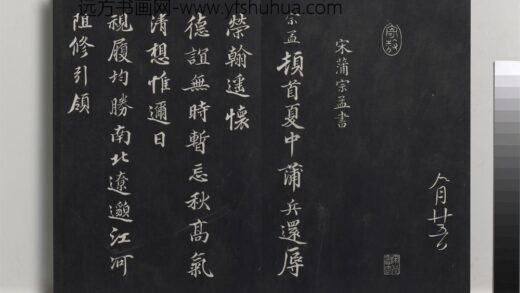 远方书画网-www.yfshuhua.com
宋蒲宗孟書
宗孟頓首夏中蒲兵還辱
榮翰遥懷
德誼無時暫忘秋高氣
清想惟邇日
視履均勝南北遼邈江河
阻修引領